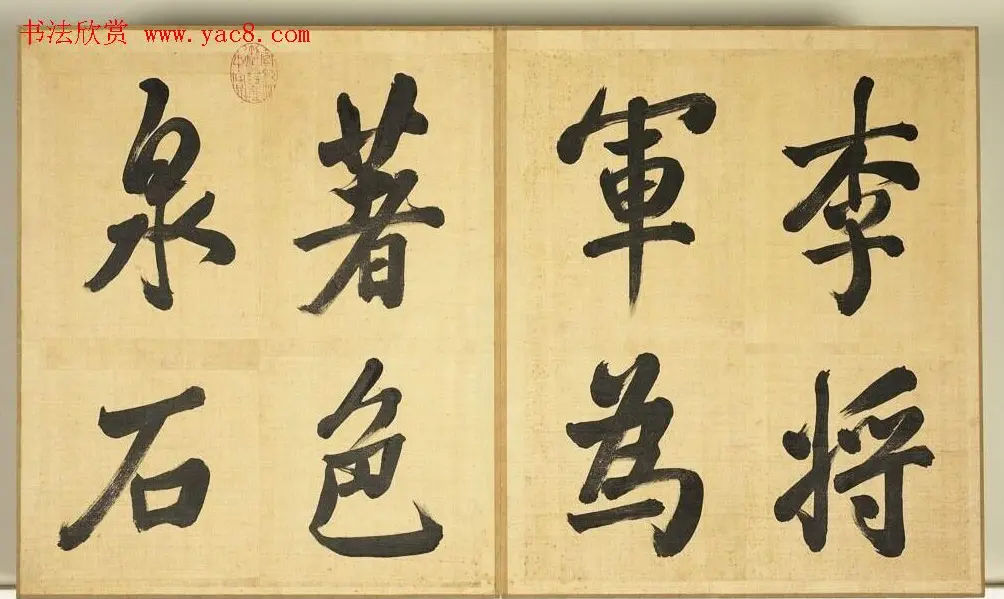 书法欣赏 www.yac8.com
李将
軍為
著色
泉石